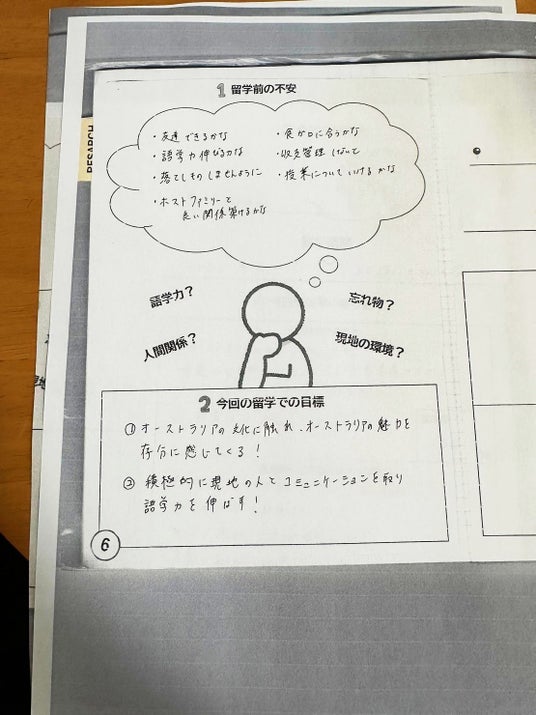 RESARCH
1 留学前の不安
・友達できるかな
・語学力伸びるかな
・落としものしませんように
・ホストファミリーと
良い関係築けるかな
・食が口に合うかな
・収支管理しないと
・授業についていけるかな
語学力？
忘れ物？
人間関係？
現地の環境？
2 今回の留学での目標
① オーストラリアの文化に触れ、オーストラリアの魅力を
存分に感じてくる！
② 積極的に現地の人とコミュニケーションを取り
語学力を伸ばす！
6